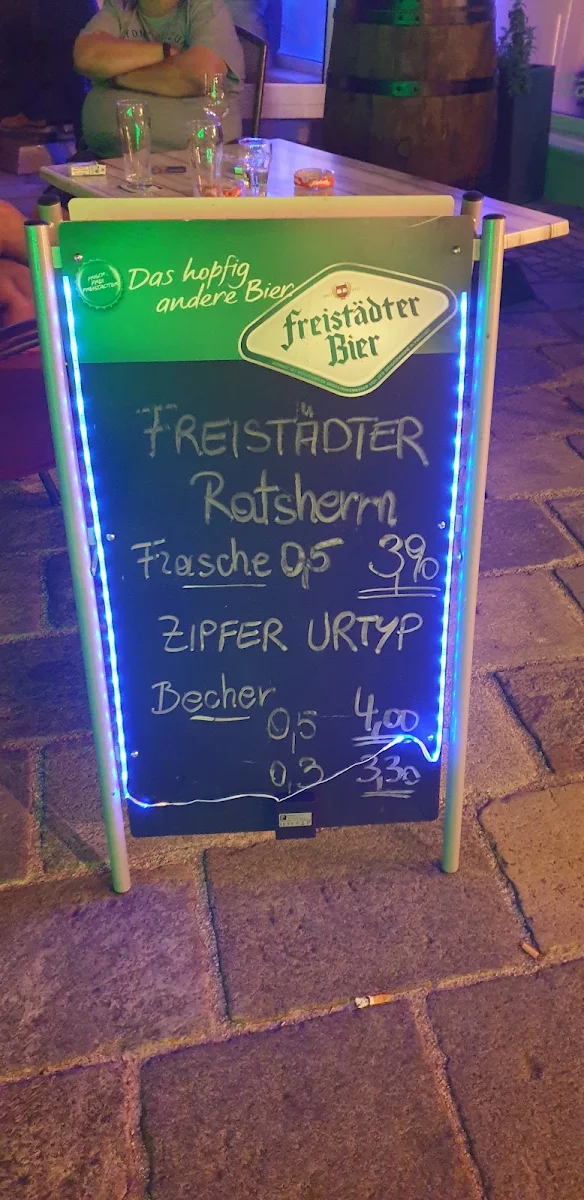 Das hopfig
andere Bier.
Freistädter
Bier
FREISTÄDTER
Ratsherrn
Flasche 0,5 3,90
ZIPFER URTYP
Becher
0,5 4,00
0,3 3,30